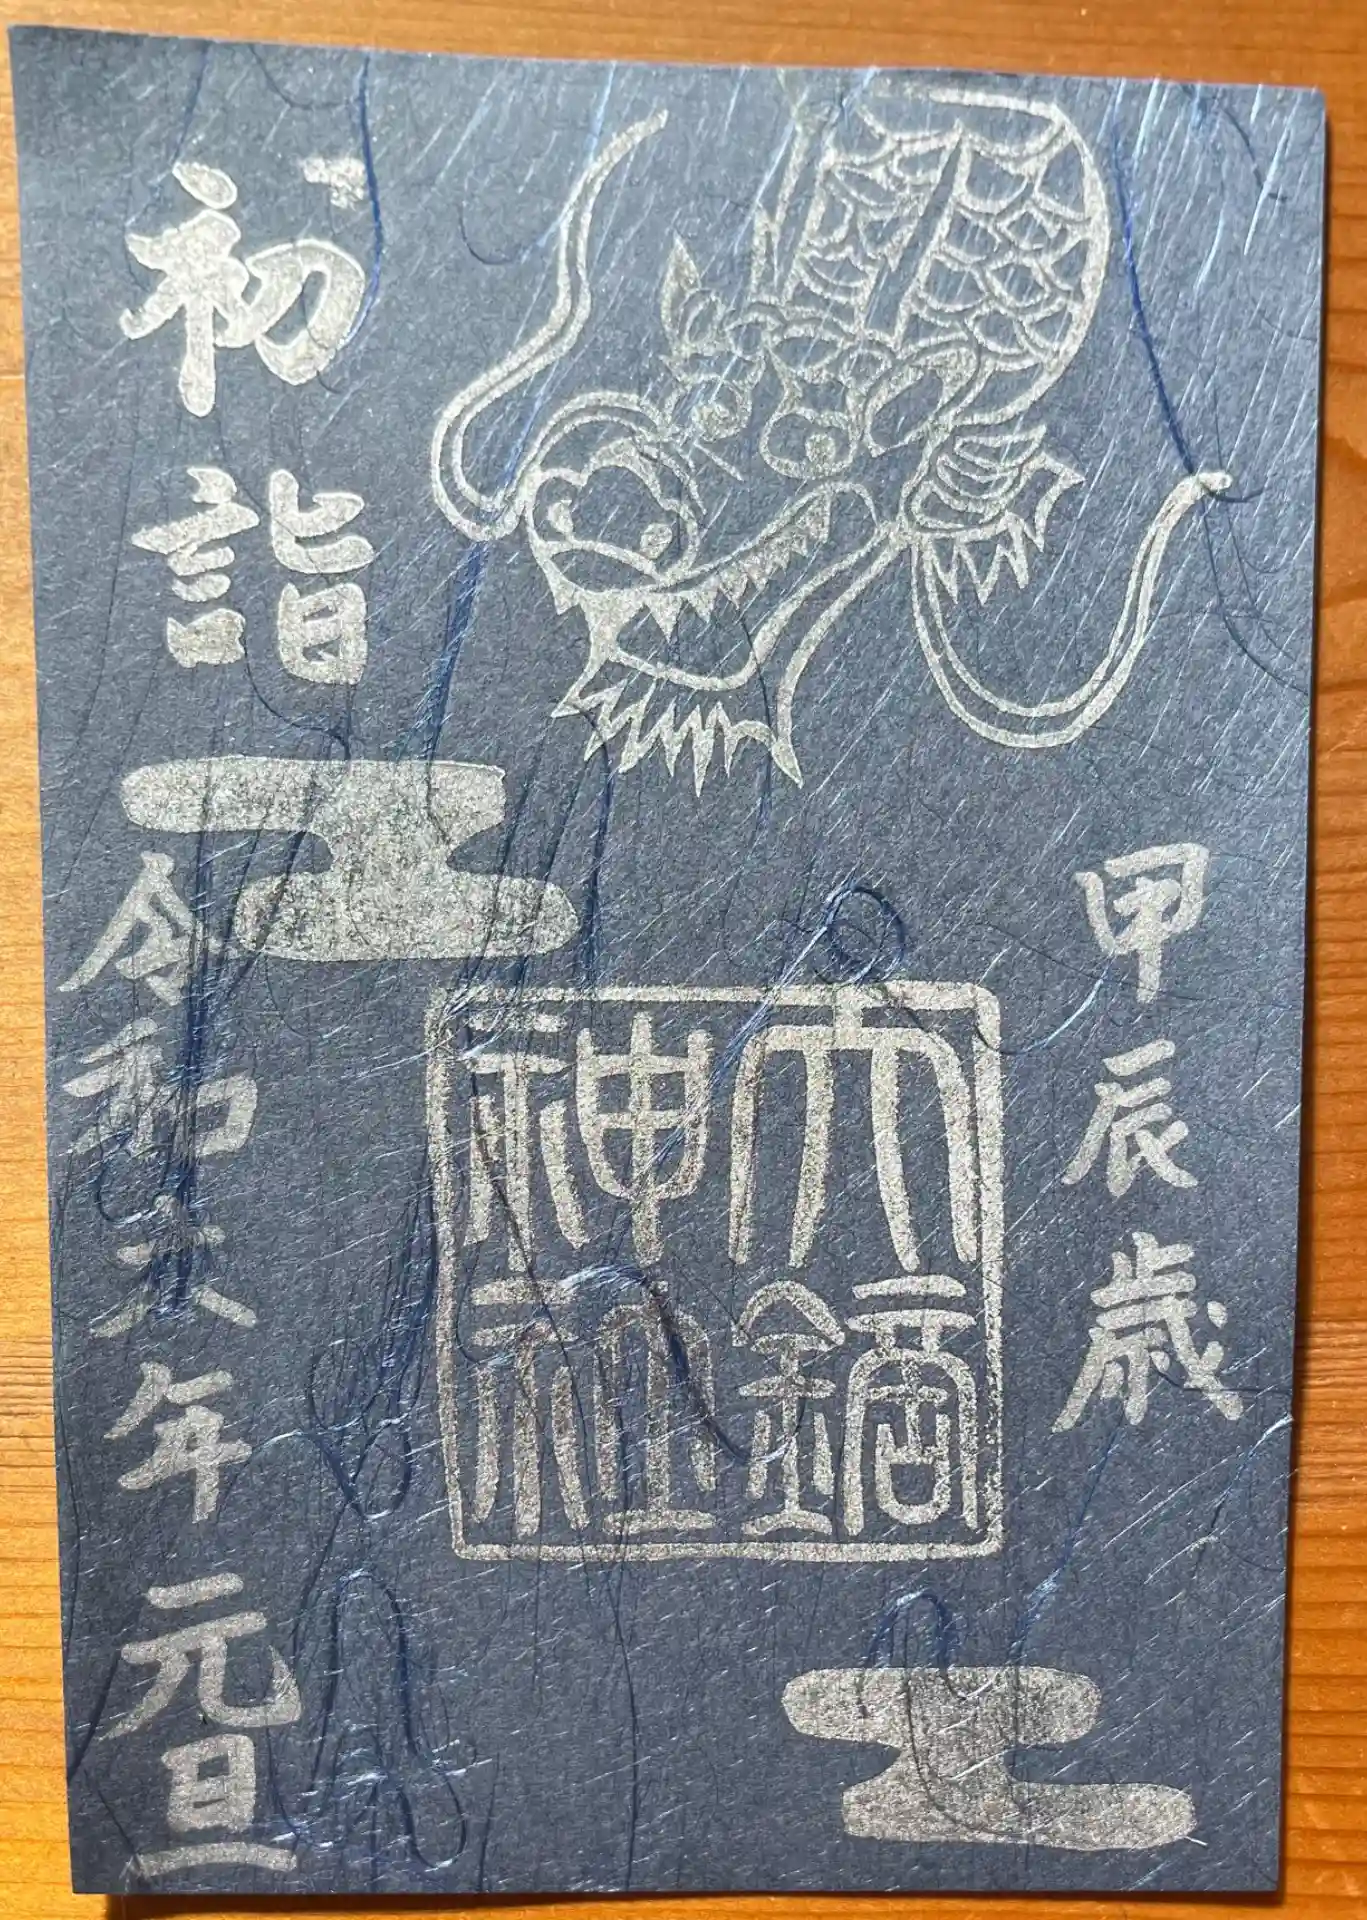 甲辰歳
大鏑
神社
初詣
令和六年元旦